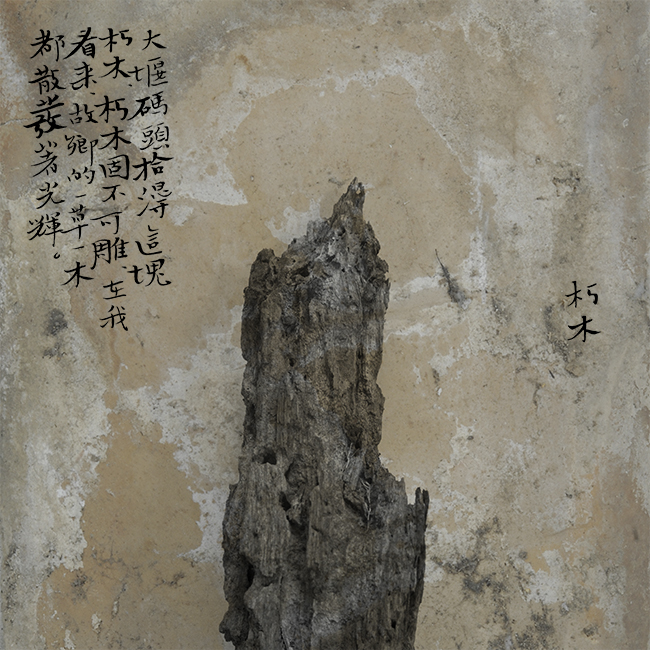 朽木
大堰碼頭拾得這塊
朽木、朽木固不可雕、在我
看来、故鄉的一草一木
都散發著光輝。